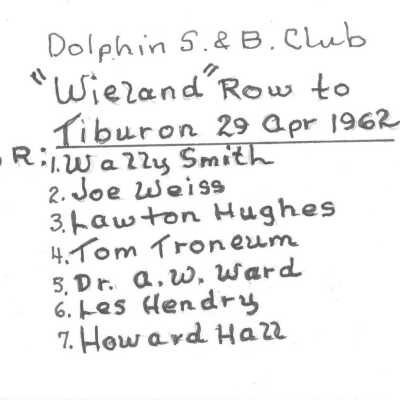 Dolphin S. & B. Club
"Wieland" Row to
Tiburon 29 Apr 1962
R: 1. Wally Smith
2. Joe Weiss
3. Lawton Hughes
4. Tom Troneum
5. Dr. A. W. Ward
6. Les Hendry
7. Howard Hall